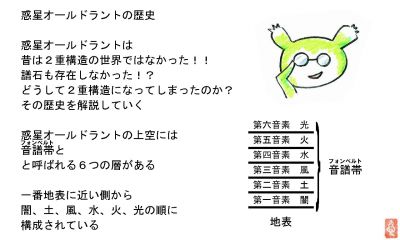 惑星オールドラントの歴史
惑星オールドラントは
昔は２重構造の世界ではなかった！！
譜石も存在しなかった！？
どうして２重構造になってしまったのか？
その歴史を解説していく
惑星オールドラントの上空には
フォンベルト
音譜帯と
と呼ばれる６つの層がある
一番地表に近い側から
闇、土、風、水、火、光の順に
構成されている
第六音素　光
第五音素　火
第四音素　水
第三音素　風
第二音素　土
第一音素　闇
フォンベルト
音譜帯
地表